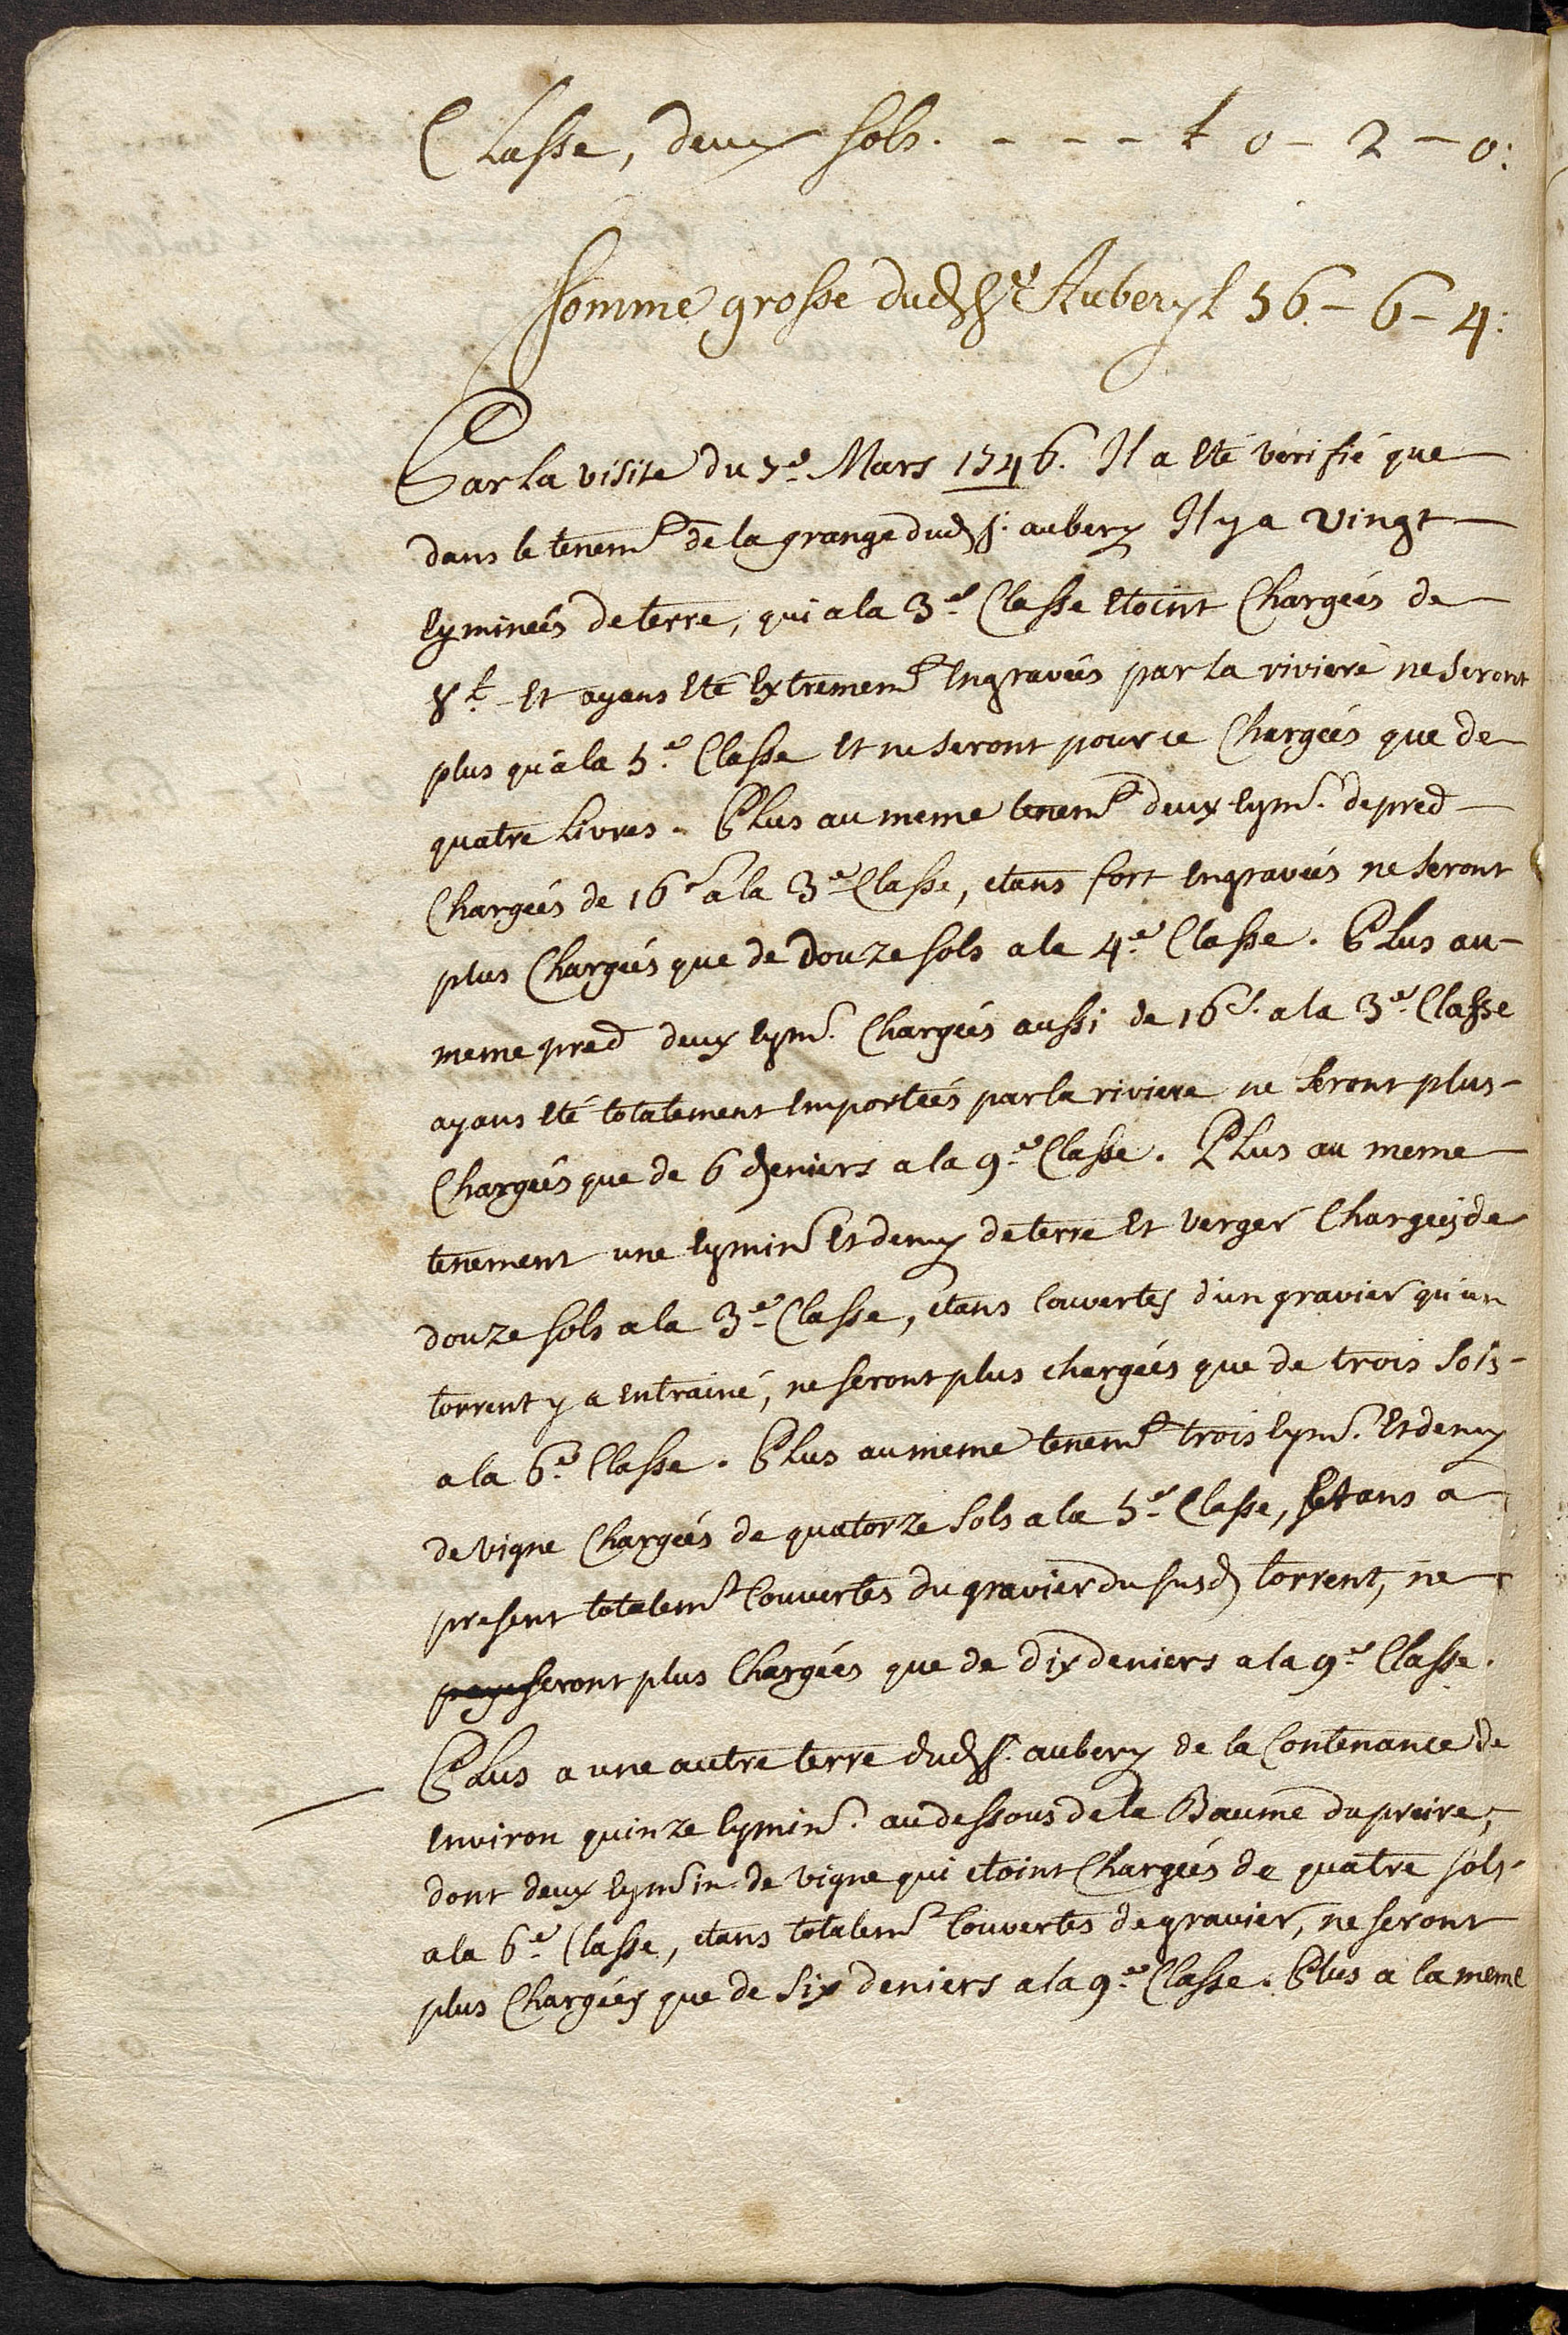 Classe, deux sols. - - - - ₶ 0 - 2 - 0:
Somme grosse dud Sr. Aubery ₶ 56. - 6 - 4:
Par la visite du 7e. Mars 1746. Il a eté verifié que
dans le tenemt. de la grange dud s. aubery Il y a vingt
eyminées de terre, qui a la 3e. Classe etoint Chargées de
8₶. Et ayans eté Extrememt. Engravées par la riviere ne seront
plus qu'a la 5e. Classe Et ne seront pour ce Chargées que de
quatre Livres. Plus au meme tenemt. deux eym. de pred
Chargées de 16s. a la 3e. Classe, etans fort Engravées ne seront
plus Chargées que de Douze sols a la 4e. Classe. Plus au
meme pred deux eym. Chargées aussi de 16s. a la 3e. Classe
ayans eté totalement Emportées par la riviere ne seront plus
Chargées que de 6 deniers a la 9e. Classe. Plus au meme
tenement une eymin. Et demy de terre Et verger Chargées de
douze sols a la 3e. Classe, etans Couvertes d'un gravier qu'un
torrent y a Entrainé, ne seront plus chargées que de trois sols
a la 6e. Classe. Plus au meme tenemt. trois eym. Et demy
de vigne Chargées de quatorze sols a la 5e. Classe, Etans a
present totalemt. Couvertes du gravier du susd torrent, ne
seront plus Chargées que de dix deniers a la 9e. Classe.
Plus a une autre terre dud s. aubery de la Contenance de
Environ quinze eymin. au dessous de la Baume du preire,
dont deux eymin de vigne qui etoint Chargées de quatre sols
a la 6e. Classe, etans totalemt. Couvertes de gravier, ne seront
plus Chargées que de six deniers a la 9e. Classe. Plus a la meme